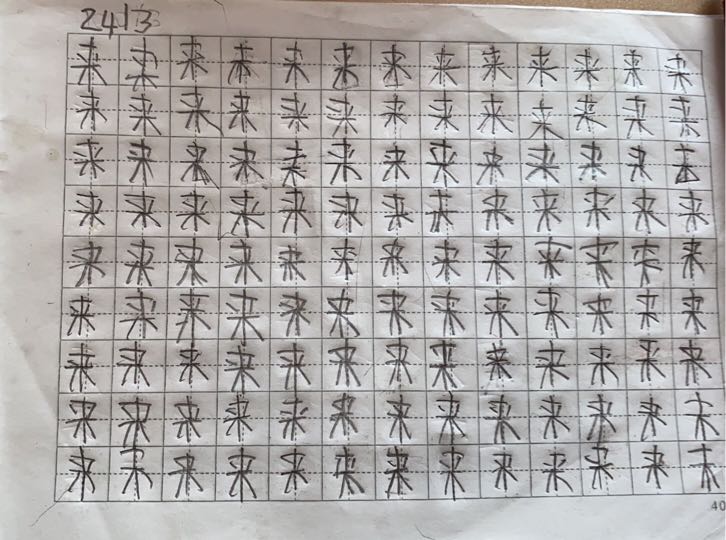 2413
来来来来来来来来来来来来来
来来来来来来来来来来来来来
来来来来来来来来来来来来来
来来来来来来来来来来来来来
来来来来来来来来来来来来来
来来来来来来来来来来来来来
来来来来来来来来来来来来来
来来来来来来来来来来来来来
来来来来来来来来来来来来来
40